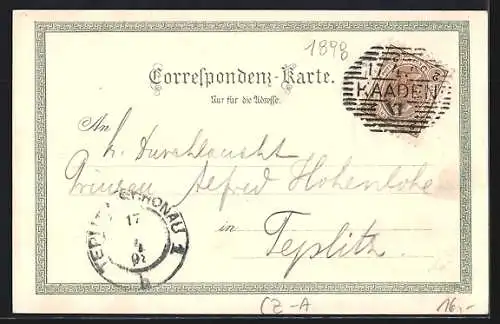 1898
Correspondenz-Karte.
Nur für die Adresse.
17 4
KAADEN
An
Durchlaucht
Prinzen Alfred Hohenlohe
in
Teplitz
TEPLITZ SCHÖNAU 1
17
4
98
b
CZ-A
16,-